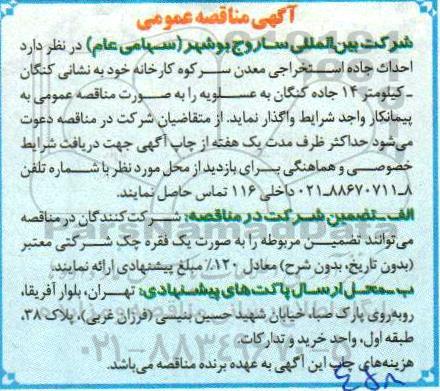 آگهی مناقصه عمومی
شرکت بین‌المللی ساروج بوشهر (سهامی عام) در نظر دارد
احداث جاده استخراجی معدن سرکوه کارخانه خود به نشانی کنگان
ـ کیلومتر ۱۴ جاده کنگان به عسلویه را به صورت مناقصه عمومی به
پیمانکار واجد شرایط واگذار نماید. از متقاضیان شرکت در مناقصه دعوت
می‌شود حداکثر ظرف مدت یک هفته از چاپ آگهی جهت دریافت شرایط
خصوصی و هماهنگی برای بازدید از محل مورد نظر با شماره تلفن
۸ـ۸۸۶۷۰۷۱۱ـ۰۲۱ داخلی ۱۱۶ تماس حاصل نمایند.
الف ـ تضمین شرکت در مناقصه: شرکت‌کنندگان در مناقصه
می‌توانند تضمین مربوطه را به صورت یک فقره چک شرکتی معتبر
(بدون تاریخ، بدون شرح) معادل ۱۲۰٪ مبلغ پیشنهادی ارائه نمایند.
ب ـ محل ارسال پاکت‌های پیشنهادی: تهران، بلوار آفریقا،
روبه‌روی پارک صبا، خیابان شهید حسین بنیسی (فرزان غربی)، پلاک ۳۸،
طبقه اول، واحد خرید و تدارکات.
هزینه‌های چاپ این آگهی به عهده برنده مناقصه می‌باشد.